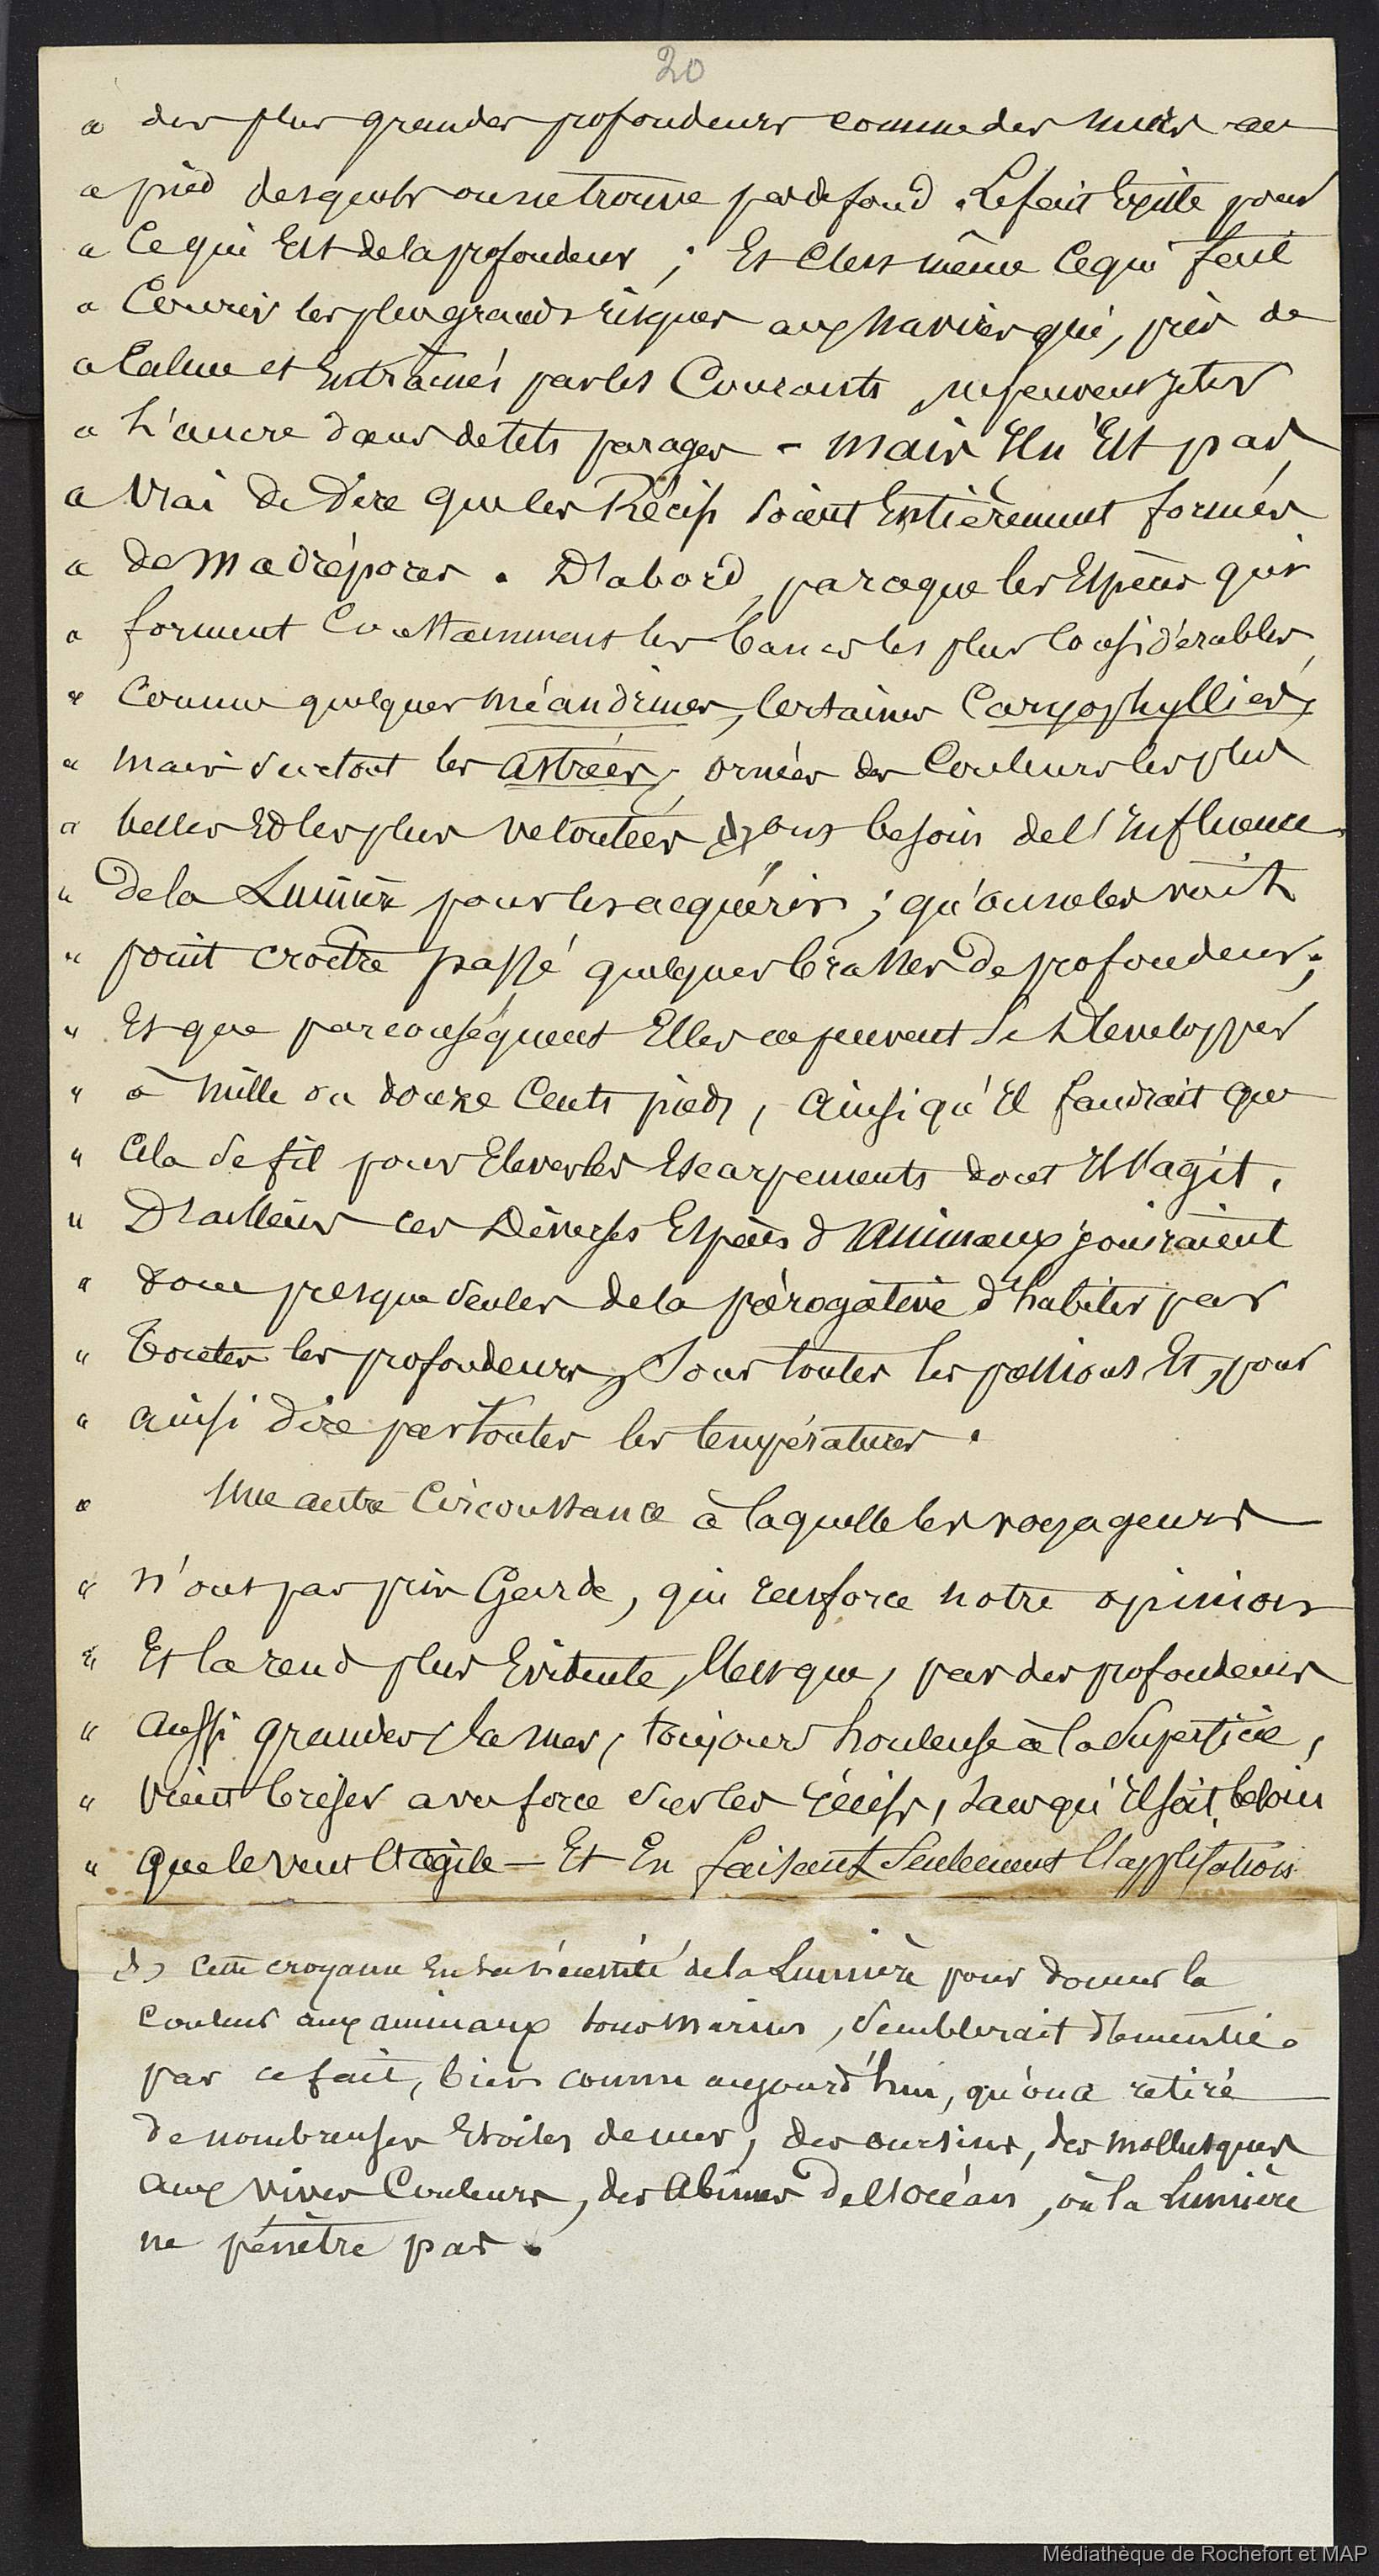 20
« des plus grandes profondeurs comme des murs au
« pied desquels on ne trouve pas de fond. Le fait Existe pour
« Ce qui Est de la profondeur ; Et C'est même Ce qui fait
« Courir les plus grands risques aux navires qui, pris de
« Calme et Entraînés par les Courants, ne peuvent jeter
« L'ancre dans de tels parages - mais Il n'Est pas
« Vrai de dire que les Récifs soient Entièrement formés
« de Madrépores. D'abord, parceque les Espèces qui
« forment Constamment les bancs les plus Considérables,
« Comme quelques méandrines, Certaines Caryophyllies,
« mais surtout les Astrées, ornées des Couleurs les plus
« belles Et les plus veloutées, ont besoin de l'Influence
« de la Lumière pour les acquérir ; qu'on ne les voit
« point croître passé quelques brasses de profondeur ;
« Et que par conséquent Elles ne peuvent se Développer
« à mille ou douze Cents pieds, ainsi qu'Il faudrait que
« Cela se fit pour Elever les Escarpements dont Il s'agit.
« D'ailleurs ces Diverses Espèces d'Animaux jouiraient
« donc presque seules de la prérogative d'habiter par
« toutes les profondeurs, sous toutes les pressions Et, pour
« ainsi dire par toutes les températures.
« Une autre Circonstance à laquelle les voyageurs
« n'ont pas pris Garde, qui renforce notre opinion
« Et la rend plus Evidente, C'est que, par des profondeurs
« aussi grandes, la mer, toujours houleuse à la superficie,
« vient briser avec force sur les récifs, sans qu'Il soit besoin
« que le vent l'agite — Et En faisant seulement l'application
Cette croyance En la nécessité de la Lumière pour donner la
Couleur aux animaux sous marins, semblerait démentie
par ce fait, bien connu aujourd'hui, qu'on a retiré
de nombreuses Etoiles de mer, des oursins, des mollusques
aux vives Couleurs, des Abîmes de l'océan, où la Lumière
ne pénètre pas.
Médiathèque de Rochefort et MAP